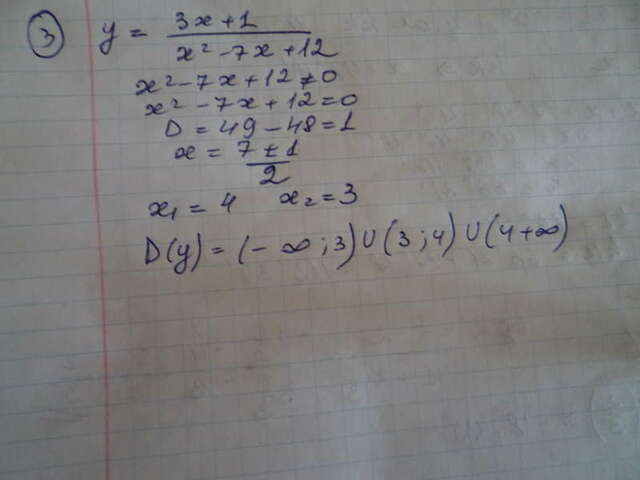 ③ y = (3x+1)/(x²-7x+12)
x²-7x+12≠0
x²-7x+12=0
D=49-48=1
x = (7±1)/2
x₁=4 x₂=3
D(y)=(-∞;3)∪(3;4)∪(4+∞)